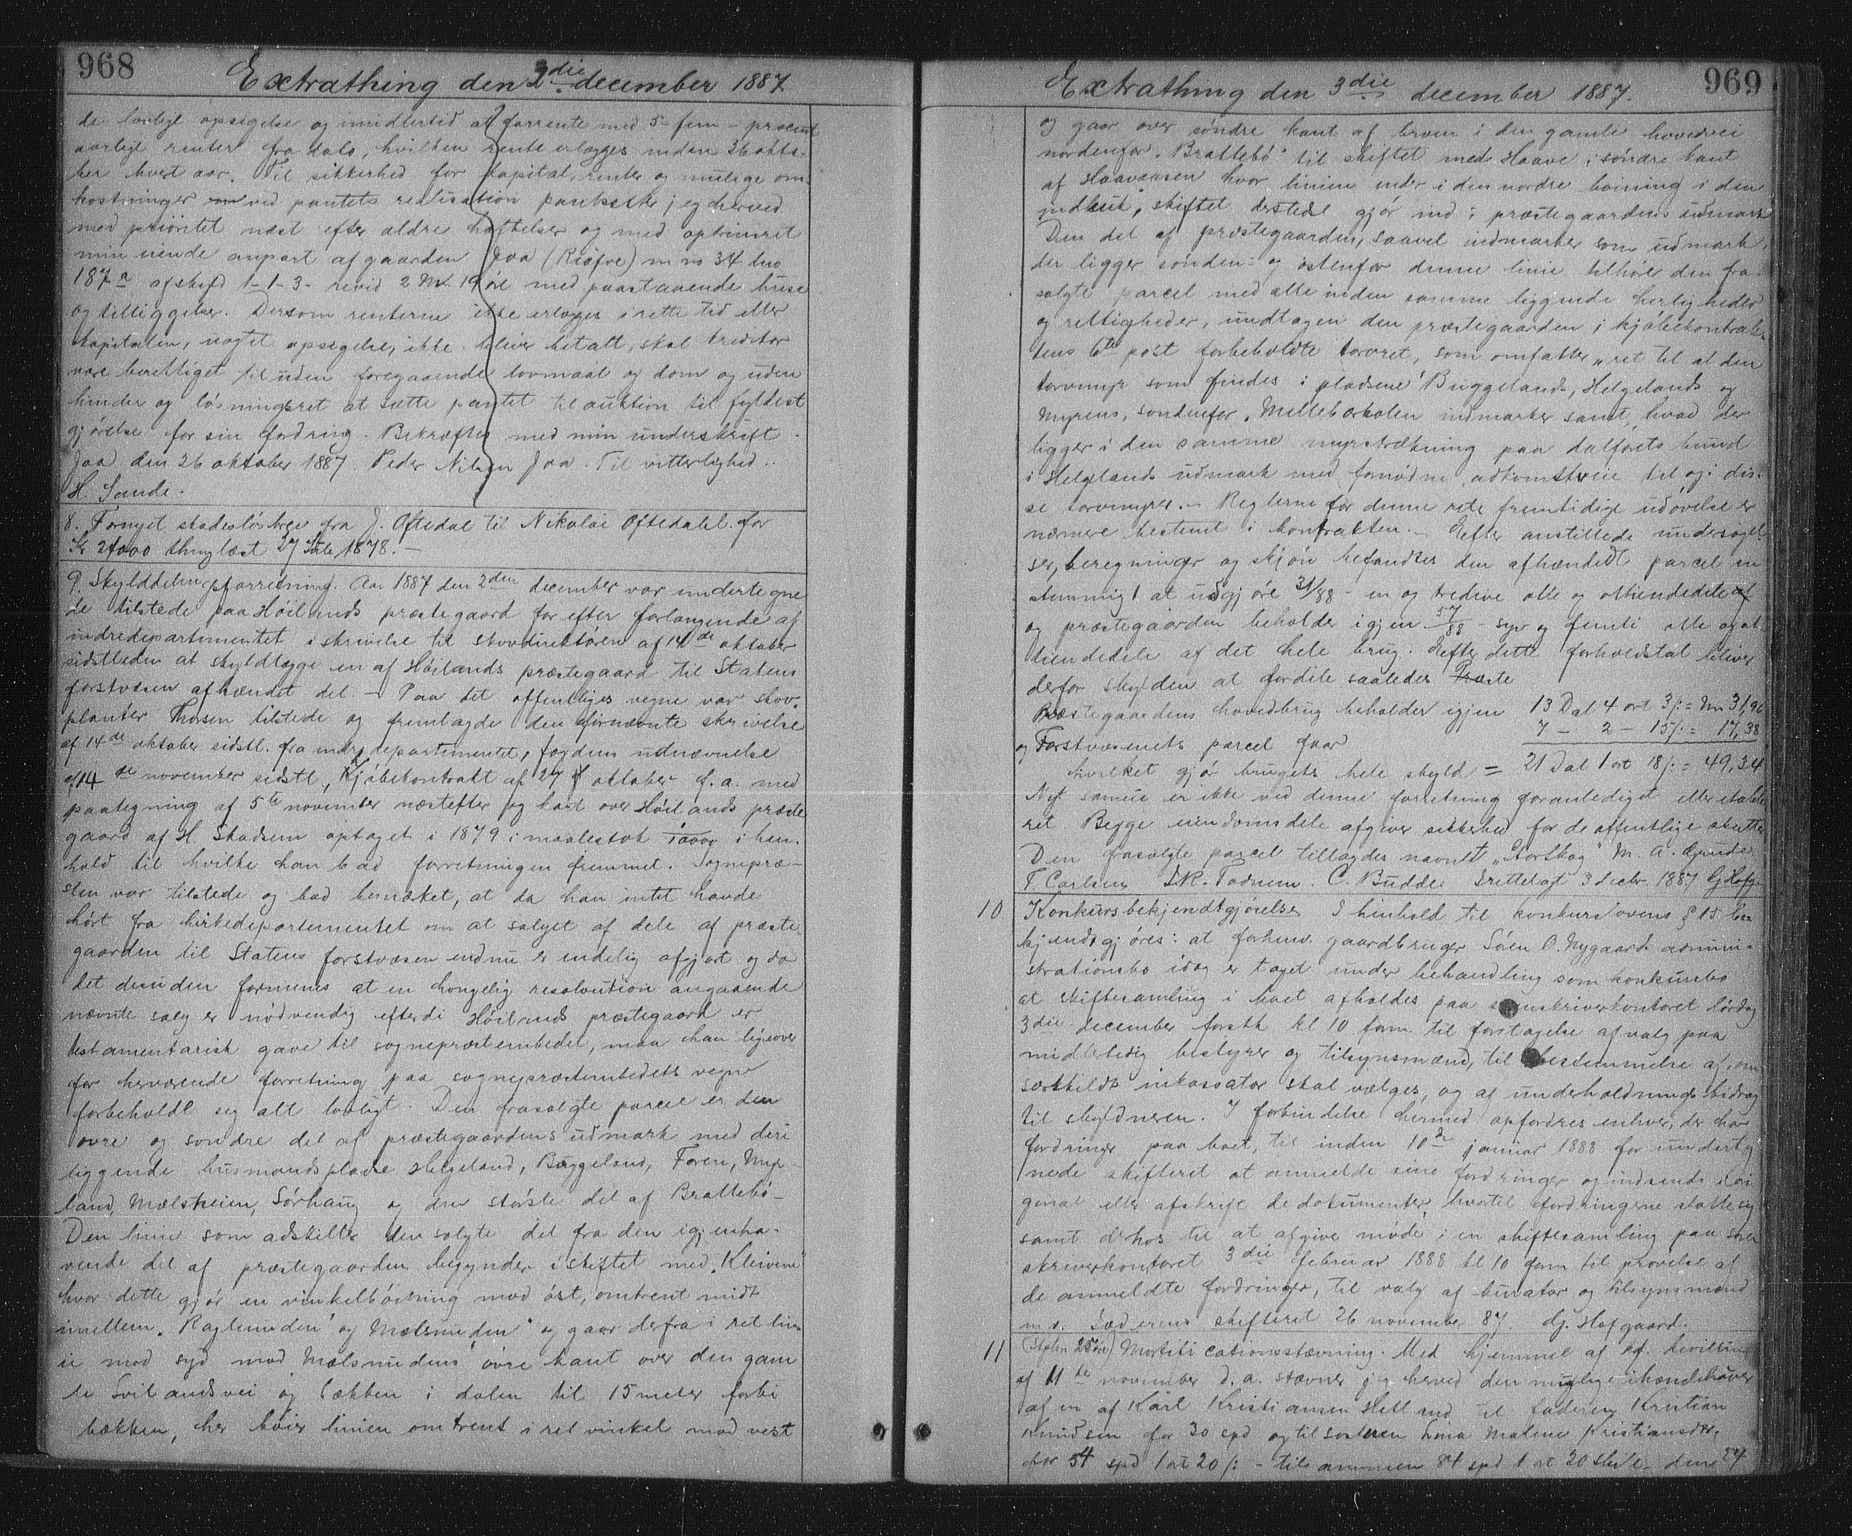 968
Extrathing den 3die december 1887
de lovlige opsigelse og imidlertid at forrente med 5 - fem - procent
aarlige renter fra dato, hvilken rente erlægges inden 26 okto-
ber hvert aar. Til sikkerhed for kapital, renter og mulige om-
kostninger ved pantets realisation pantsætter jeg herved
med prioritet næst efter ældre hæftelser og med opbrineret
min eiende anpart af gaarden Joa (Risfve) m no 34 lno
187a af skyld 1-1-3- revid 2 Mk 19 øre med paastaaende huse
og tilliggelser. Dersom renterne ikke erlægges i rette tid eller
kapitalen, uagtet opsigelse, ikke bliver betalt, skal kreditor
være berettiget til uden foregaaende lovmaal og dom og uden
hinder og løsningsret at sætte pantet til auktion til fyldest
gjørelse for sin fordring. Bekræftes med min underskrift.
Joa den 26 oktober 1887. Peder Nilsen Joa. Til vitterlighed..
H. Sande.
8. Fornyet skadesløsbrev fra J. Oftedal til Nikolai Oftedahl for
Kr 24000 thinglæst 27 1878. -
9. Skylddelingsforretning. Aar 1887 den 2den december var undertegne
de tilstede paa Høilands præstegaard for efter forlangende af
indredepartementet i skrivelse til skovdirektøren af 14de oktober
sidstleden at skyldlægge en af Høilands præstegaard til Statens
forstvæsen afhændet del. - Paa det offentliges vegne var skov-
planter Thorsen tilstede og fremlagde den fornævnte skrivelse
af 14de oktober sidstl. fra indredepartementet, fogdens udnævnelse
af 14de november sidstl, Kjøbekontrakt af 27 oktober d. a. med
paategning af 5te november næstefter og kart over Høilands præste
gaard af H. Skadsem optaget i 1879 i maalestok 1/10000 i hen-
hold til hvilke han bad forretningen fremmet. Sognepræ-
sten var tilstede og bad bemærket, at da han intet havde
hørt fra kirkedepartementet om at salget af dele af præste
gaarden til Statens forstvæsen endnu er endelig afgjort og da
det desuden formenes at en kongelig resolution angaaende
nævnte salg er nødvendig efterdi Høilands præstegaard er
testamentarisk gave til sognepræstembedet, maa han ligeover
for herværende forretning paa sognepræstembedets vegne
forbeholde sig alt lovligt. Den frasolgte parcel er den
øvre og søndre del af præstegaardens udmark med deri
liggende husmandspladse Helgeland, Buggeland, Foren, Myr-
land, Mælsheien, Sørhaug og den største del af Brattebø -
Den linie som adskille den solgte del fra den igjenha-
vende del af præstegaarden begynder i skiftet med "Kleivene"
hvor dette gjør en vinkelbøining mod øst, omtrent midt
imellem "Ragjemuden" og Mælsmuden" og gaar derfra i ret lin-
ie mod syd mod Mælsmudens øvre kant over den gam
le Svilandsvei og bækken i dalen til 15 meter forbi
bækken, her bøier linien omtrent i ret vinkel mod vest
969
Extrathing den 3die december 1887.
og gaar over søndre kant af broen i den gamle hovedvei
nordenfor "Brattebø" til skiftet med Haave i søndre kant
af Haaveaasen hvor linien ender i den nordre bøining i den
indbuk, skiftet dersteds gjør ind i præstegaardens udmark
Den del af præstegaarden, saavel indmarker som udmark,
der ligger sønden- og østenfor denne linie tilhører den fra-
solgte parcel med alle inden samme liggende herligheder
og rettigheder, undtagen den præstegaarden i kjøbekontrak-
tens 6te post forbeholdte torvret, som omfatter "ret til at den
torvmyr som findes i pladsene Buggelands, Helgelands og
Myrens, sondenfor "Melleborholen indmarker samt, hvad der
ligger i den samme myrstrækning paa dalførets bund
i Helgelands udmark med fornødne adkomstveie til og i dis-
se torvmyrer. - Reglerne for denne rets fremtidige udøvelse er
nærmere bestemt i kontrakten. - Efter anstillede undersøgel-
ser, beregninger og skjøn befandtes den afhændede parcel en-
stemmigt at udgjøre 31/88 - en og tredive otte og ottiendedele af
og præstegaarden beholder igjen 57/88 - syv og femti otte og ot-
tiendedele af det hele brug. Efter dette forholdstal bliver
derfor skylden at fordele saaledes Præste
Præstegaardens hovedbrug beholder igjen 13 Dal 4 ort 3 /:= Mk 31,96
og Forstvæsenets parcel faar 7 - 2 - 15/: = 17,38
hvilket gjør brugets hele skyld = 21 Dal 1 ort 18 /: = 49,34
Nyt sameie er ikke ved denne forretning foranlediget eller etable
ret. Begge eiendomsdele afgiver sikkerhed for de offentlige skatter
Den frasolgte parcel tillagdes navnet "Storskog" M. A. Grude
T. Carlsen S. R. Todnem. C. Budde. Irettelagt 3 decbr. 1887 Gj Hofg.
10 Konkursbekjendtgjørelse I henhold til konkurslovens § 15 be-
kjendtgjøres: at forhenv. gaardbruger Søren O. Nygaards admini-
strationsbo idag er taget under behandling som konkursbo
at skiftesamling i boet afholdes paa sorenskriverkontoret lørdag
3die december førstk kl 10 form. til foretagelse af valg paa
midlertidig bestyrer og tilsynsmænd, til bestemmelse af, om
særskildt inkassator skal vælges, og af underholdningsbidrag
til skyldneren. I forbindelse hermed opfordres enhver, der har
fordringer paa boet, til inden 10de januar 1888 for underteg
nede skifteret at anmelde sine fordringer og indsende i ori
ginal eller afskrift de dokumenter, hvortil fordringerne støtte sig
samt derhos til at afgive møde i en skiftesamling paa soren
skriverkontoret 3die februar 1888 kl 10 form til prøvelse af
de anmeldte fordringer, til valg af kurator og tilsynsmænd
m. v. Jæderens skifteret 26 november 87. Gj. Hofgaard.
11 (Stplm 25 øre) Mortificationsstævning. Med hjemmel af kgl. bevilling
af 11te november d. a. stævner jeg herved den mulige ihændehaver
af en af Karl Kristiansen Helland til faderen Kristian
Knudsen for 30 spd og til søsteren Lena Malene Kristiansdtr.
for 54 spd 1 ort 20 /: - tilsammen 84 spd 1 ort 20 skill - den 24